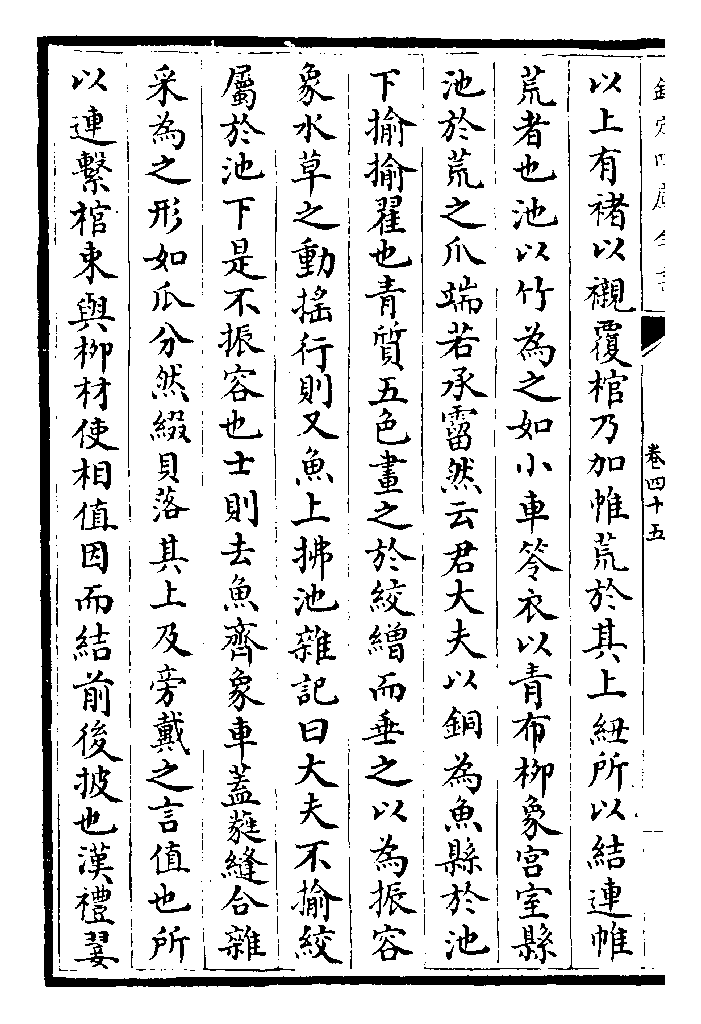 欽定四庫全書
卷四十五
以上有褚以襯覆棺乃加帷荒於其上紐所以結連帷
荒者也池以竹為之如小車笭衣以青布柳象宫室縣
池於荒之爪端若承霤然云君大夫以銅為魚縣於池
下揄揄翟也青質五色畫之於絞繒而垂之以為振容
象水草之動摇行則又魚上拂池雜記曰大夫不揄絞
屬於池下是不振容也士則去魚齊象車蓋蕤縫合雜
采為之形如爪分然綴貝落其上及旁戴之言值也所
以連繫棺束與柳材使相值因而結前後披也漢禮翣